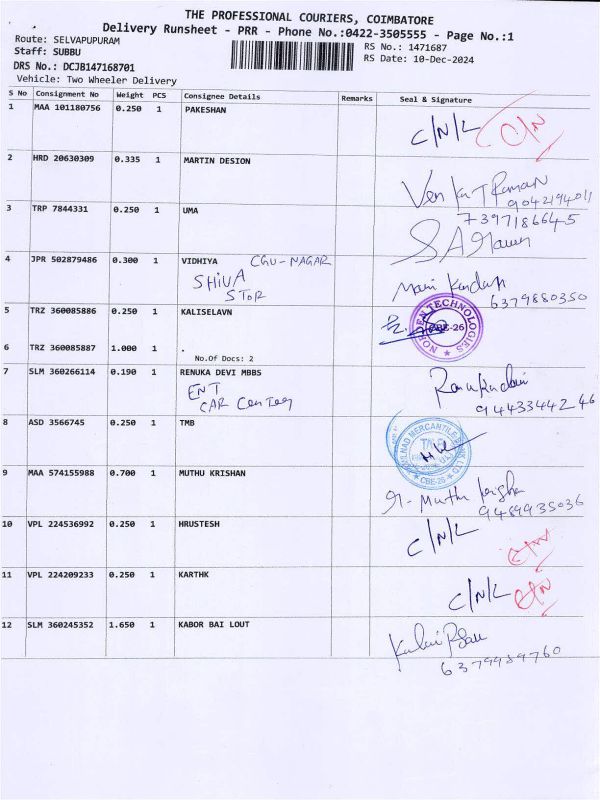 THE PROFESSIONAL COURIERS, COIMBATORE
Delivery Runsheet - PRR - Phone No.:0422-3505555 - Page No.:1
Route: SELVAPUPURAM
RS No.: 1471687
Staff: SUBBU
RS Date: 10-Dec-2024
DRS No.: DCJB147168701
Vehicle: Two Wheeler Delivery
S No Consignment No Weight PCS Consignee Details Remarks Seal & Signature
1 MAA 101180756 0.250 1 PAKESHAN
C/N/L C/N
2 HRD 20630309 0.335 1 MARTIN DESION
Venkat Raman
9042194011
3 TRP 7844331 0.250 1 UMA
7397186645
4 JPR 502879486 0.300 1 VIDHIYA CGU-NAGAR
SHIVA
STOR
Mani Kandan
6379880350
5 TRZ 360085886 0.250 1 KALISELAVN
NORDEN TECHNOLOGIES
CBE-26
6 TRZ 360085887 1.000 1
No.Of Docs: 2
7 SLM 360266114 0.190 1 RENUKA DEVI MBBS
ENT
CAR
9443344246
8 ASD 3566745 0.250 1 TMB
TAMILNAD MERCANTILE BANK LTD
CBE-26
9 MAA 574155988 0.700 1 MUTHU KRISHAN
Muthu
9489935036
10 VPL 224536992 0.250 1 HRUSTESH
C/N/L C/N
11 VPL 224209233 0.250 1 KARTHK
C/N/L C/N
12 SLM 360245352 1.650 1 KABOR BAI LOUT
6379989760